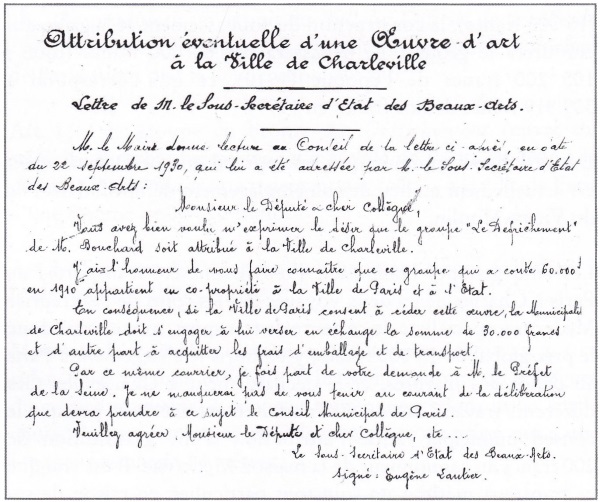 Attribution éventuelle d'une Œuvre d'art
à la Ville de Charleville
Lettre de M. le Sous-Secrétaire d'Etat des Beaux-Arts.
M. le Maire donne lecture au Conseil de la lettre ci-après, en date
du 22 septembre 1930, qui lui a été adressée par M. le Sous-Secrétaire d'Etat
des Beaux-Arts :
Monsieur le Député & cher Collègue,
Vous avez bien voulu m'exprimer le désir que le groupe "Le Défrichement"
de M. Bouchard soit attribué à la Ville de Charleville.
J'ai l'honneur de vous faire connaître que ce groupe qui a coûté 60.000 f
en 1910 appartient en co-propriété à la Ville de Paris et à l'Etat.
En conséquence, si la Ville de Paris consent à céder cette œuvre, la Municipalité
de Charleville doit s'engager à lui verser en échange la somme de 30.000 francs
et d'autre part à acquitter les frais d'emballage et de transport.
Par ce même courrier, je fais part de votre demande à M. le Préfet
de la Seine. Je ne manquerai pas de vous tenir au courant de la délibération
que devra prendre à ce sujet le Conseil Municipal de Paris.
Veuillez agréer, Monsieur le Député et cher Collègue, etc ....
Le Sous-Secrétaire d'Etat des Beaux-Arts.
Signé : Eugène Lautier.